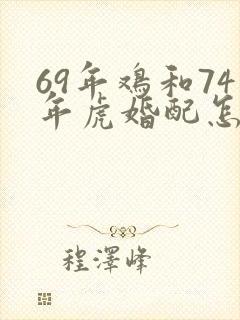 69年鸡和74
年虎婚配怎
程澤峰